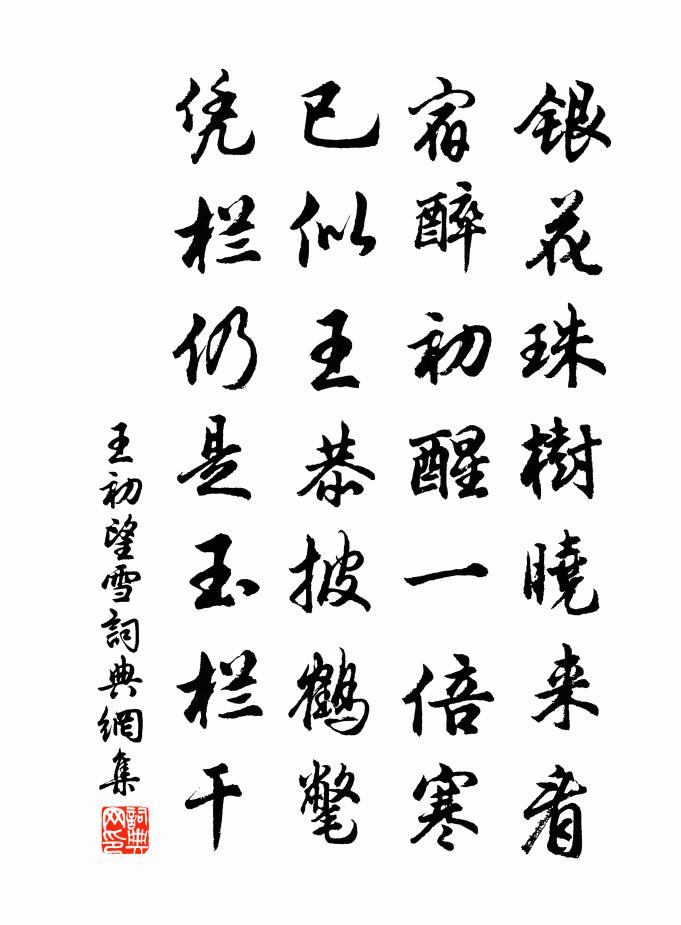 银花珠樹曉来看
宿醉初醒一倍寒
已似王恭披鹤氅
凭栏仍是玉栏干
王初望雪詞典網集
詞典网印